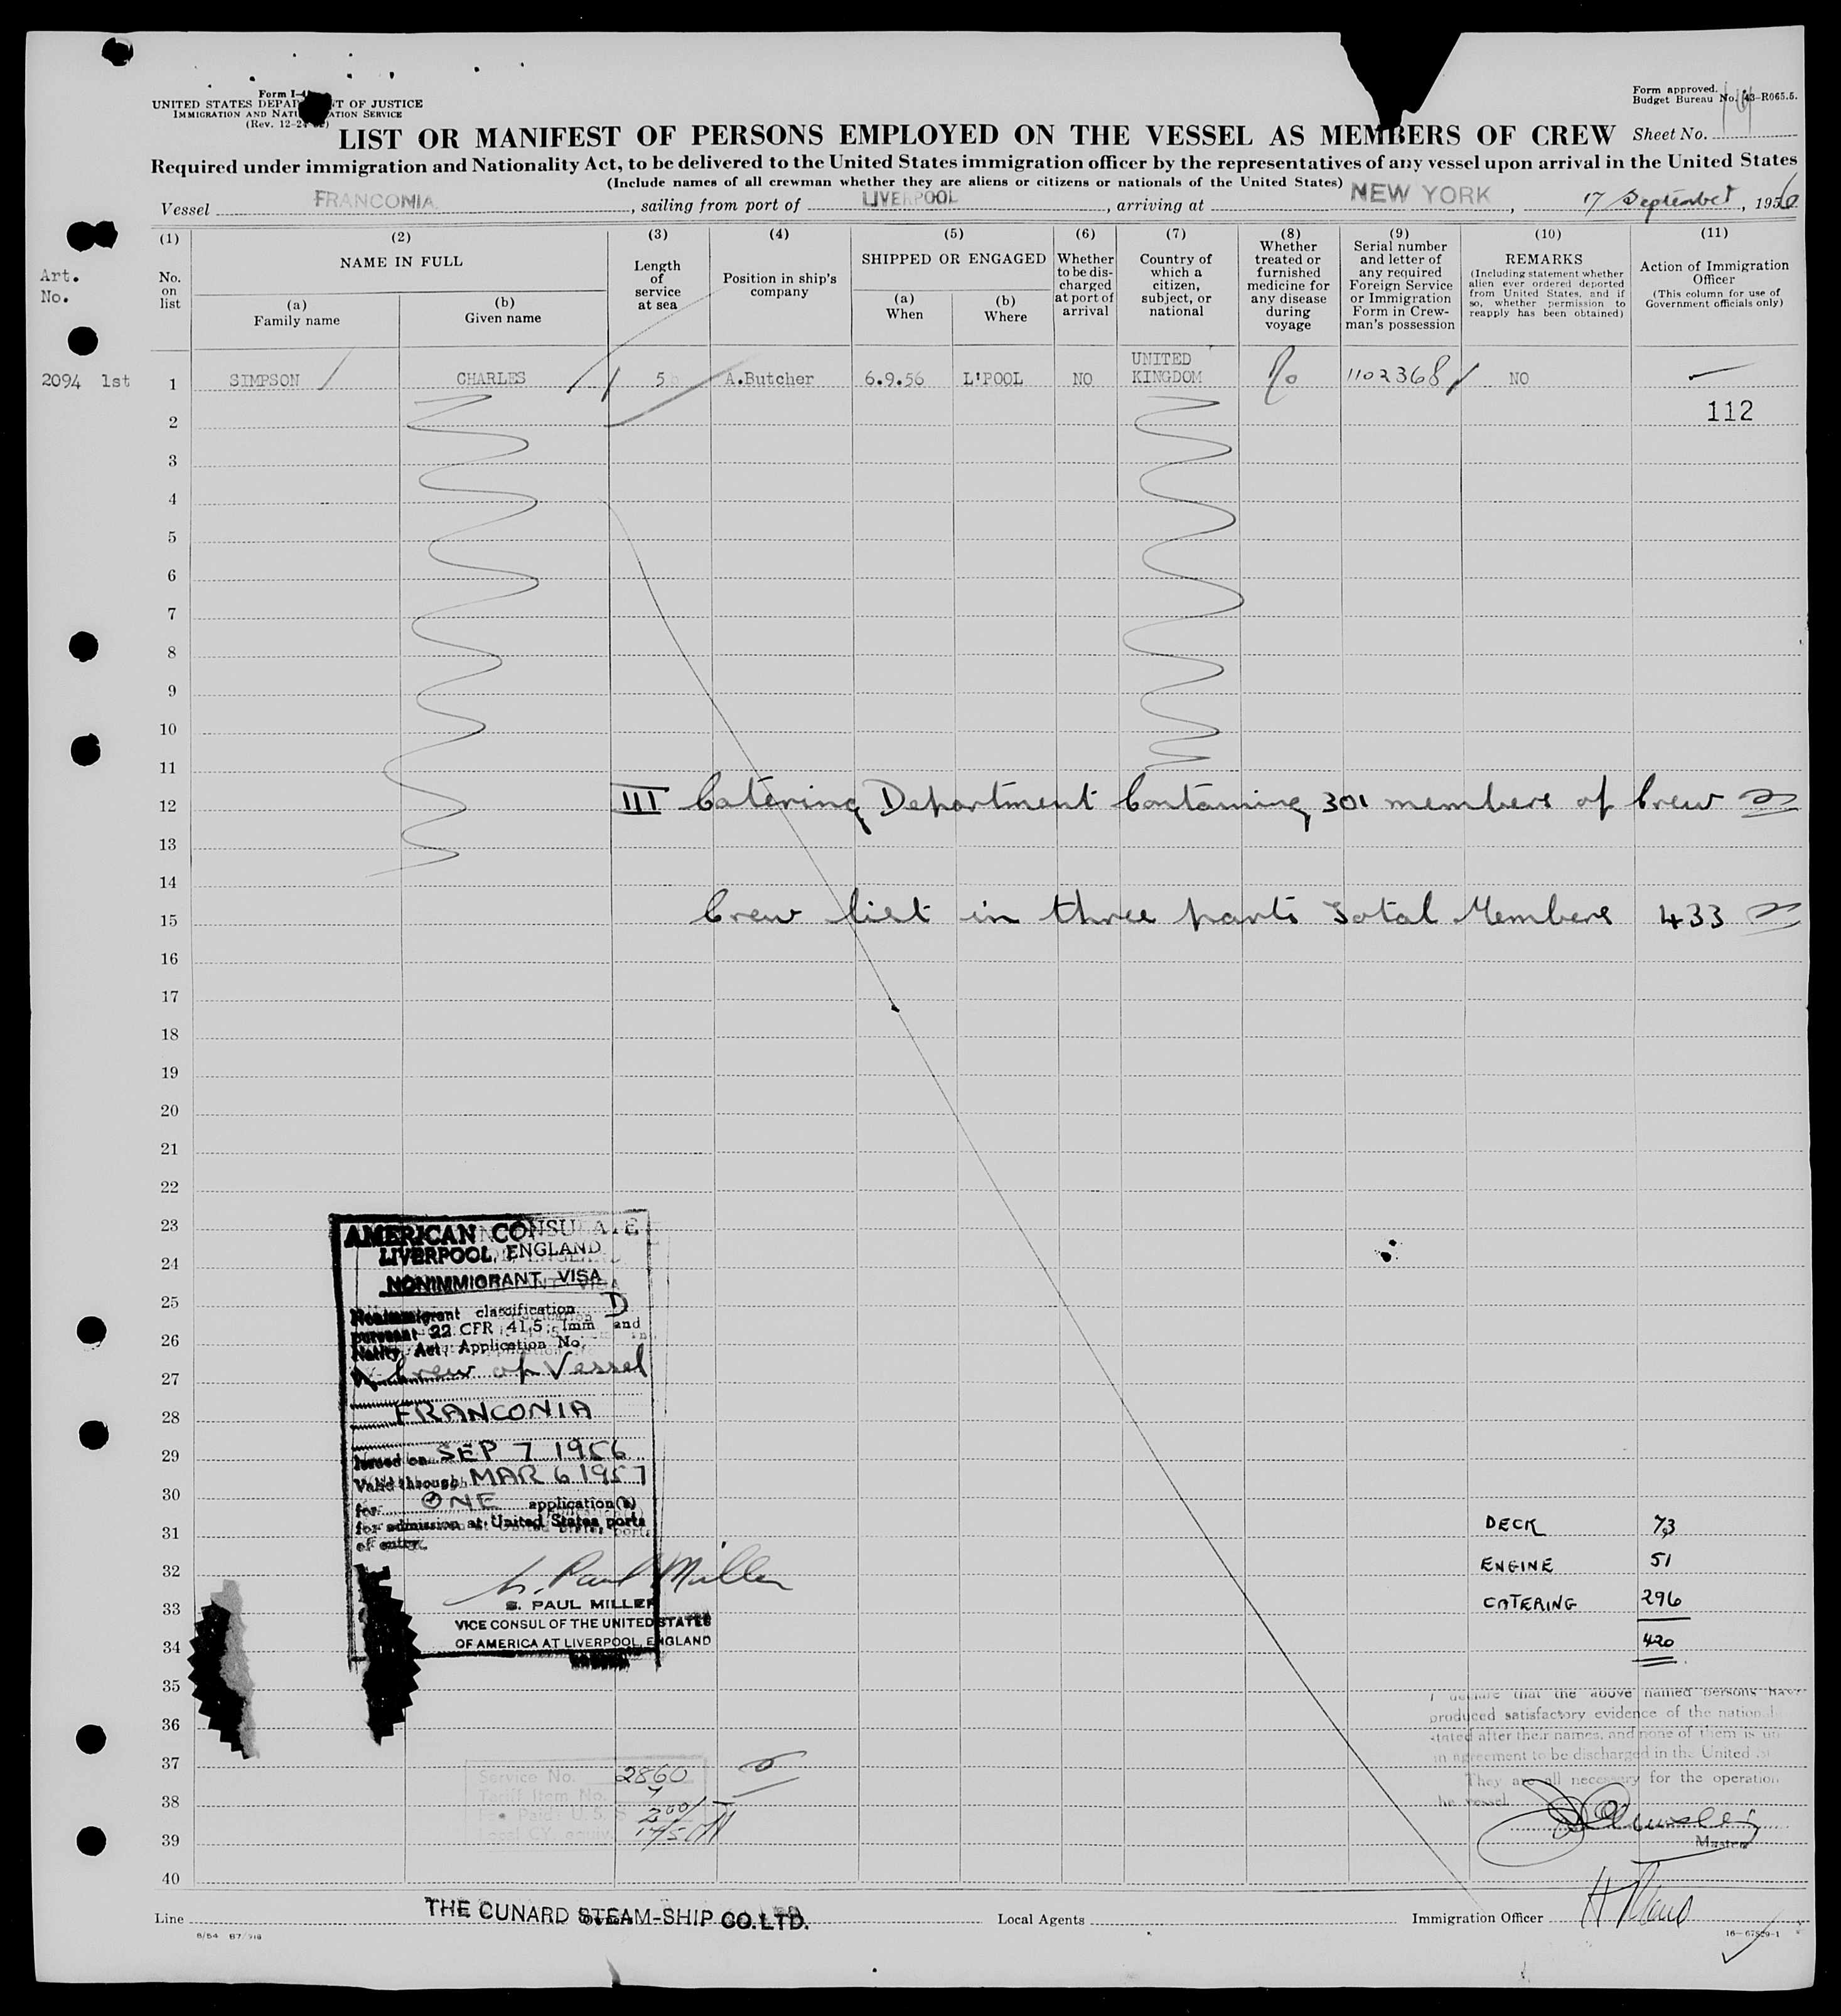 UNITED STATES DEPARTMENT OF JUSTICE
IMMIGRATION AND NATURALIZATION SERVICE
Form approved.
Budget Bureau No. 43-R065.5.
LIST OR MANIFEST OF PERSONS EMPLOYED ON THE VESSEL AS MEMBERS OF CREW Sheet No.
Required under immigration and Nationality Act, to be delivered to the United States immigration officer by the representatives of any vessel upon arrival in the United States
(Include names of all crewman whether they are aliens or citizens or nationals of the United States)
Vessel FRANCONIA, sailing from port of LIVERPOOL, arriving at NEW YORK, 17 September, 1956
Art.
No.
(1)
No.
on
list
(2)
NAME IN FULL
(a)
Family name
(b)
Given name
(3)
Length
of
service
at sea
(4)
Position in ship's
company
(5)
SHIPPED OR ENGAGED
(a)
When
(b)
Where
(6)
Whether
to be dis-
charged
at port of
arrival
(7)
Country of
which a
citizen,
subject, or
national
(8)
Whether
treated or
furnished
medicine for
any disease
during
voyage
(9)
Serial number
and letter of
any required
Foreign Service
or Immigration
Form in Crew-
man's possession
(10)
REMARKS
(Including statement whether
alien ever ordered deported
from United States, and if
so, whether permission to
reapply has been obtained)
(11)
Action of Immigration
Officer
(This column for use of
Government officials only)
2094 1st 1 SIMPSON CHARLES 5 A.Butcher 6.9.56 L'POOL NO UNITED KINGDOM No 1102368 NO
2 112
3
4
5
6
7
8
9
10
11
12 III Catering Department Containing 301 members of Crew
13
14
15 Crew list in three parts Total Members 433
16
17
18
19
20
21
22
23
24
25
26
27
28
29
30
31
32
33
34
35
36
37
38
39
40
AMERICAN CONSULATE
LIVERPOOL, ENGLAND
NONIMMIGRANT VISA
Nonimmigrant classification D
pursuant 22 CFR 41.5; Imm and
Natity. Act; Application No.
Crew of Vessel
FRANCONIA
Issued on SEP 7 1956
Valid through MAR 6 1957
for ONE application(s)
for admission at United States ports
of entry.
S. Paul Miller
S. PAUL MILLER
VICE CONSUL OF THE UNITED STATES
OF AMERICA AT LIVERPOOL, ENGLAND
DECK 73
ENGINE 51
CATERING 296
420
I declare that the above named persons have
produced satisfactory evidence of the national
stated after their names, and none of them is
an agreement to be discharged in the United
They are all necessary for the operation
the vessel
Master
Service No. 2860
Tariff Item No. 7
Fee Paid: U.S. $
Local CY. equiv.
Line THE CUNARD STEAM-SHIP CO. LTD.
Local Agents
Immigration Officer
16-67829-1